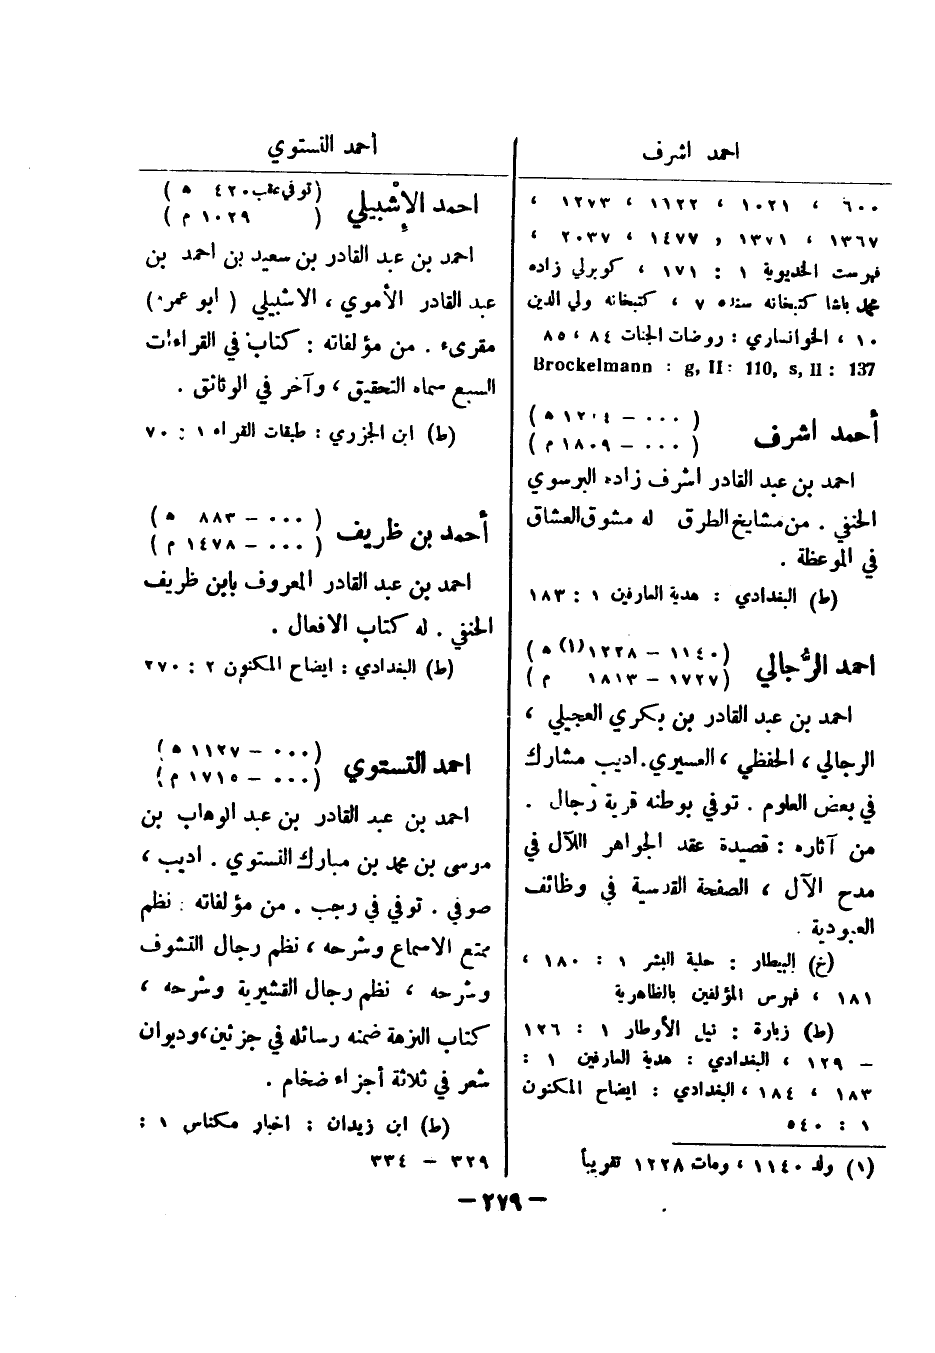 احمد اشرف
٦٠٠ ، ١٠٢١ ، ١٦٢٢ ، ١٢٧٣ ،
١٣٦٧ ، ١٣٧١ , ١٤٧٧ ، ٢٠٣٧ ،
فهرست الخديوية ١ : ١٧١ ، كوبرلي زاده
محمد باشا كتبخانه سنده ٧ ، كتبخانه ولي الدين
١٠ ، الخوانساري : روضات الجنات ٨٤ ، ٨٥
Brockelmann : g, II: 110, s, II : 137
أحمد اشرف (٠٠٠ - ١٢٠٤ ه)
(٠٠٠ - ١٨٠٩ م)
احمد بن عبد القادر اشرف زاده البرسوي
الحنفي . من مشايخ الطرق له مشوق العشاق
في الموعظة .
(ط) البغدادي : هدية العارفين ١ : ١٨٣
احمد الرُّجالي (١١٤٠ - ١٢٢٨(١) ه)
(١٧٢٧ - ١٨١٣ م)
احمد بن عبد القادر بن بكري العجيلي ،
الرجالي ، الحفظي ، العسيري. اديب مشارك
في بعض العلوم . توفي بوطنه قرية رُجال .
من آثاره : قصيدة عقد الجواهر اللآل في
مدح الآل ، الصفحة القدسية في وظائف
العبودية .
(خ) البيطار : حلية البشر ١ : ١٨٠ ،
١٨١ ، فهرس المؤلفين بالظاهرية
(ط) زبارة : نيل الأوطار ١ : ١٢٦
- ١٢٩ ، البغدادي : هدية العارفين ١ :
١٨٣ ، ١٨٤ ، البغدادي : ايضاح المكنون
١ : ٥٤٠
(١) ولد ١١٤٠ ، ومات ١٢٢٨ تقريباً
أحمد التستوي
احمد الإشبيلي (توفي عقب ٤٢٠ ه)
( ١٠٢٩ م)
احمد بن عبد القادر بن سعيد بن احمد بن
عبد القادر الأموي ، الاشبيلي ( ابو عمر )
مقرىء . من مؤلفاته : كتاب في القراءات
السبع سماه التحقيق ، وآخر في الوثائق .
(ط) ابن الجزري : طبقات القراء ١ : ٧٠
أحمد بن ظريف (٠٠٠ - ٨٨٣ ه)
(٠٠٠ - ١٤٧٨ م)
احمد بن عبد القادر المعروف بابن ظريف
الحنفي . له كتاب الافعال .
(ط) البغدادي : ايضاح المكنون ٢ : ٢٧٠
احمد التستوي (٠٠٠ - ١١٢٧ ه)
(٠٠٠ - ١٧١٥ م)
احمد بن عبد القادر بن عبد الوهاب بن
موسى بن محمد بن مبارك التستوي . اديب ،
صوفي . توفي في رجب . من مؤلفاته : نظم
ممتع الاسماع وشرحه ، نظم رجال التشوف
وشرحه ، نظم رجال القشيرية وشرحه ،
كتاب النزهة ضمنه رسائله في جزئين، وديوان
شعر في ثلاثة أجزاء ضخام .
(ط) ابن زيدان : اخبار مكناس ١ :
٣٢٩ - ٣٣٤
- ٢٧٩ -